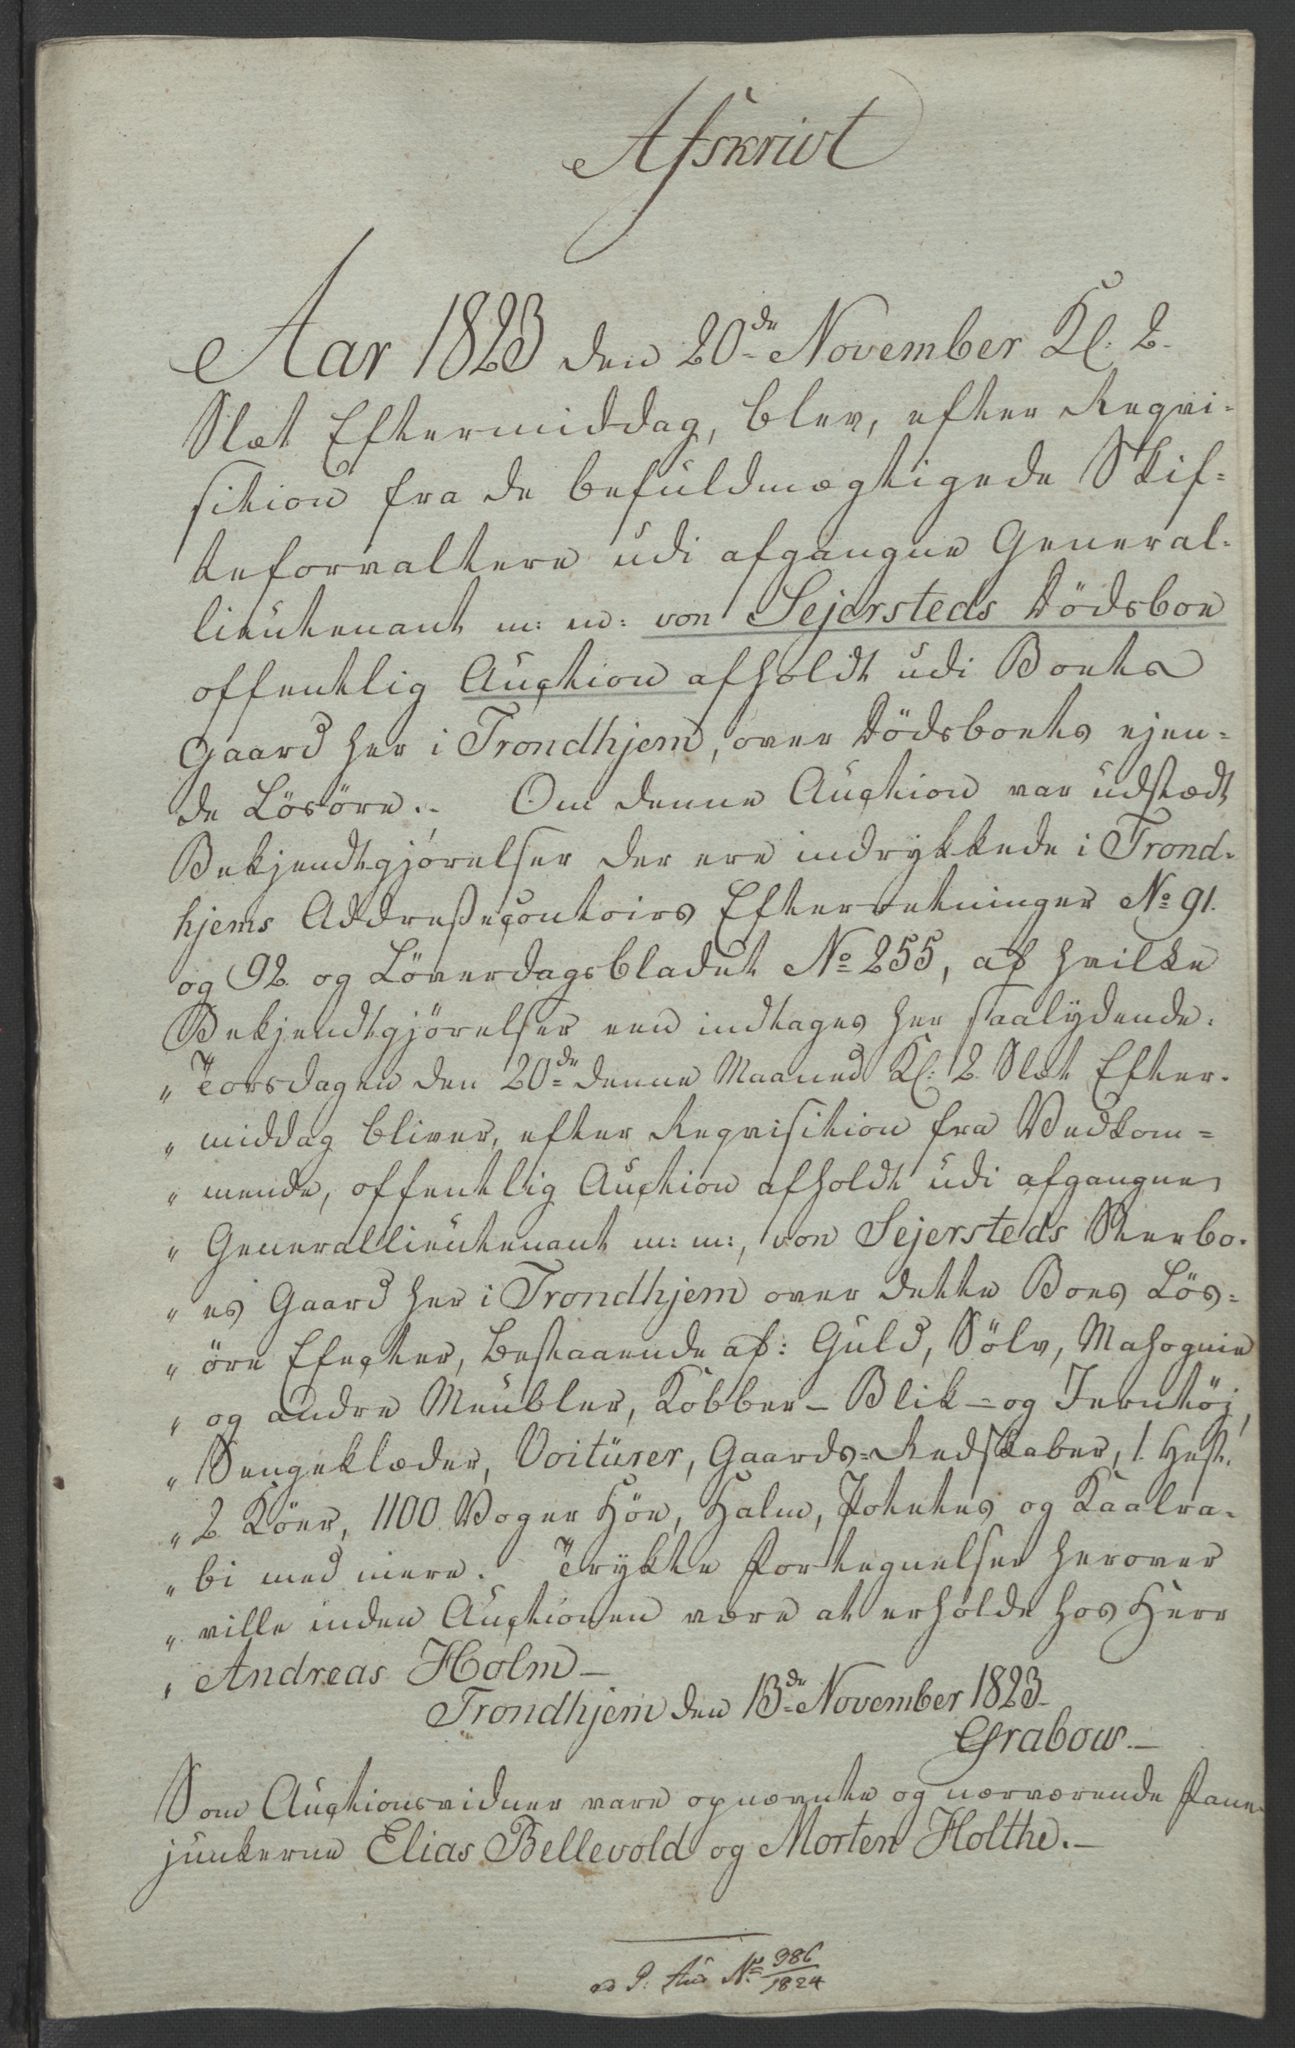 Afskrivt
Aar 1823 den 20de November Kl. 2.
Slæt Eftermiddag, blev, efter Reqvi-
sition fra de befuldmægtigede Skif-
teforvaltere udi afgangne General-
lieutenant m: m: von Sejersteds Dödsboe
offentlig Auction afholdt udi Boets
Gaard her i Trondhjem, over Dödsboets ejen-
de Lösöre. Om denne Auction var udstædt
Bekjendtgjørelser der ere indrykkede i Trond-
hjems Addreßecontoirs Efterretninger No 91.
og 92 og Löverdagsbladet No 255, af hvilke
Bekjendtgjörelser een indtages her saalydende:
„ Torsdagen den 20de denne Maaned Kl: 2 Slæt Efter-
„ middag bliver, efter Reqvisition fra Vedkom-
„ mende, offentlig Auction afholdt udi afgangne
„ Generallieutenant m: m:, von Sejersteds Sterbo-
„ es Gaard her i Trondhjem over dette Boes Lös-
„ öre Efecter, bestaaende af: Guld, Sölv, Mahognie
„ og andre Meubler, Kobber- Blik- og Jerntöj,
„ Sengeklæder, Voitürer, Gaards-Redskaber, 1. Hest.
„ 2 Köer, 1100 Voger Höe, Halm, Potetes og Kaalra-
„ bi med mere. Trykte Fortegnelser herover
„ ville inden Auctionen være at erholde hos Herr
„ Andreas Holm-
Trondhjem den 13de November 1823.
Grabow.-
Som Auctionsvidner vare opnævnte og nærværende Fane-
junkerne Elias Bellevold og Morten Holthe.-
ad P: No 986/1824